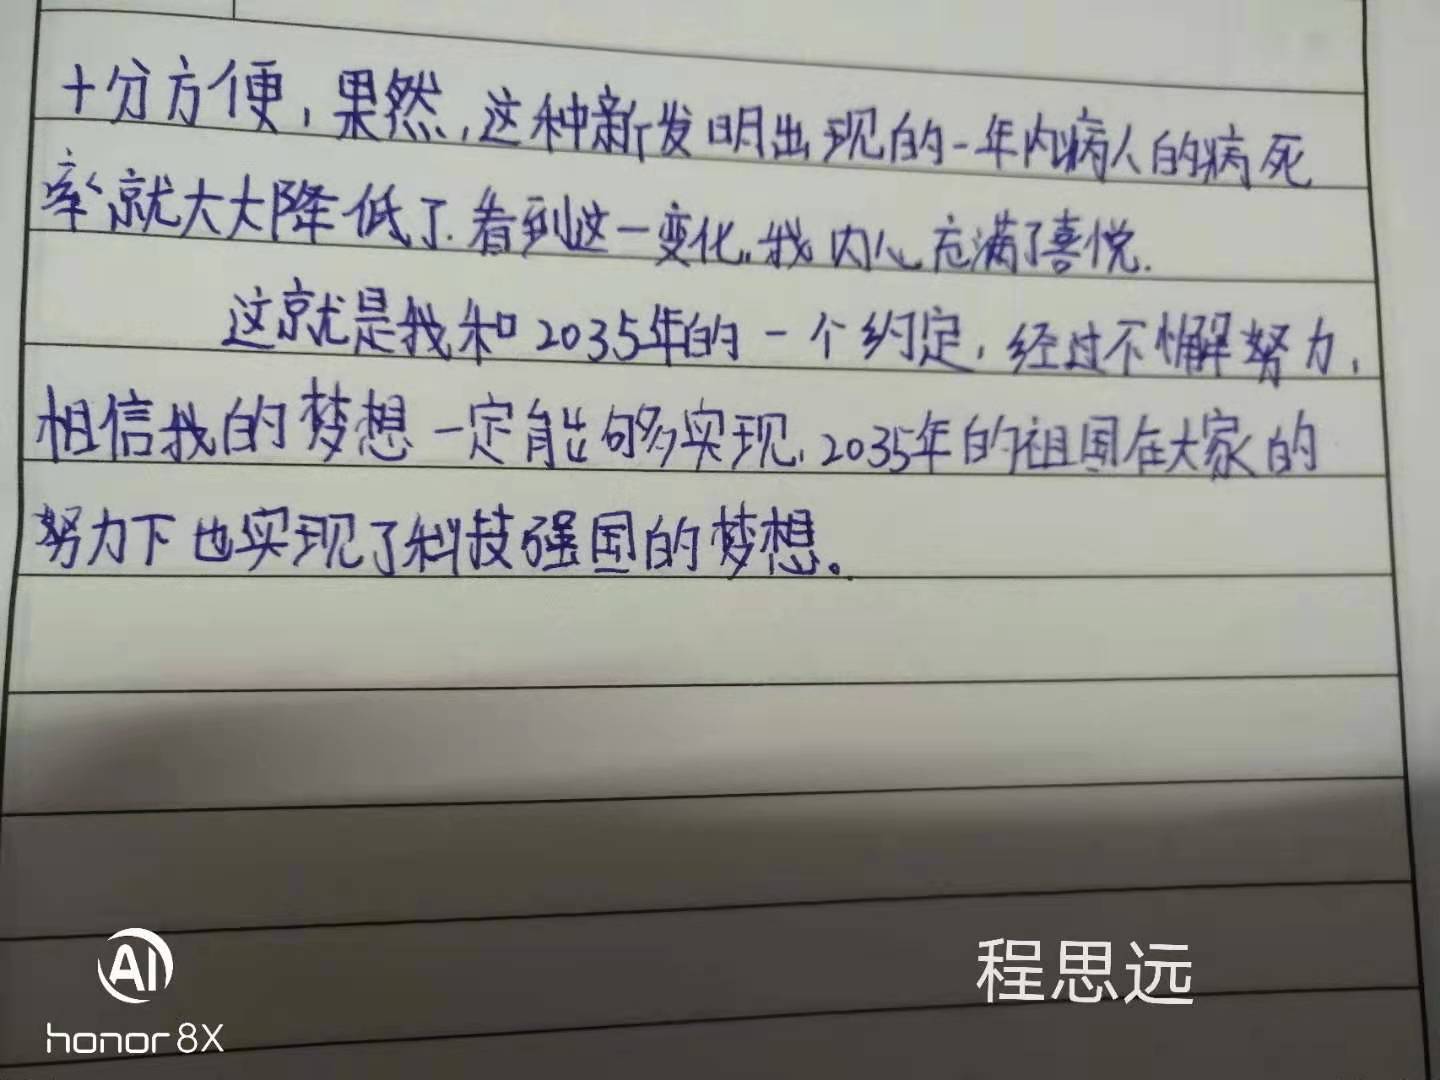 十分方便，果然，这种新发明出现的一年内病人的病死
率就大大降低了.看到这一变化,我内心充满了喜悦.
这就是我和2035年的一个约定，经过不懈努力，
相信我的梦想一定能够实现,2035年的祖国在大家的
努力下也实现了科技强国的梦想。
程思远
AI
honor 8X